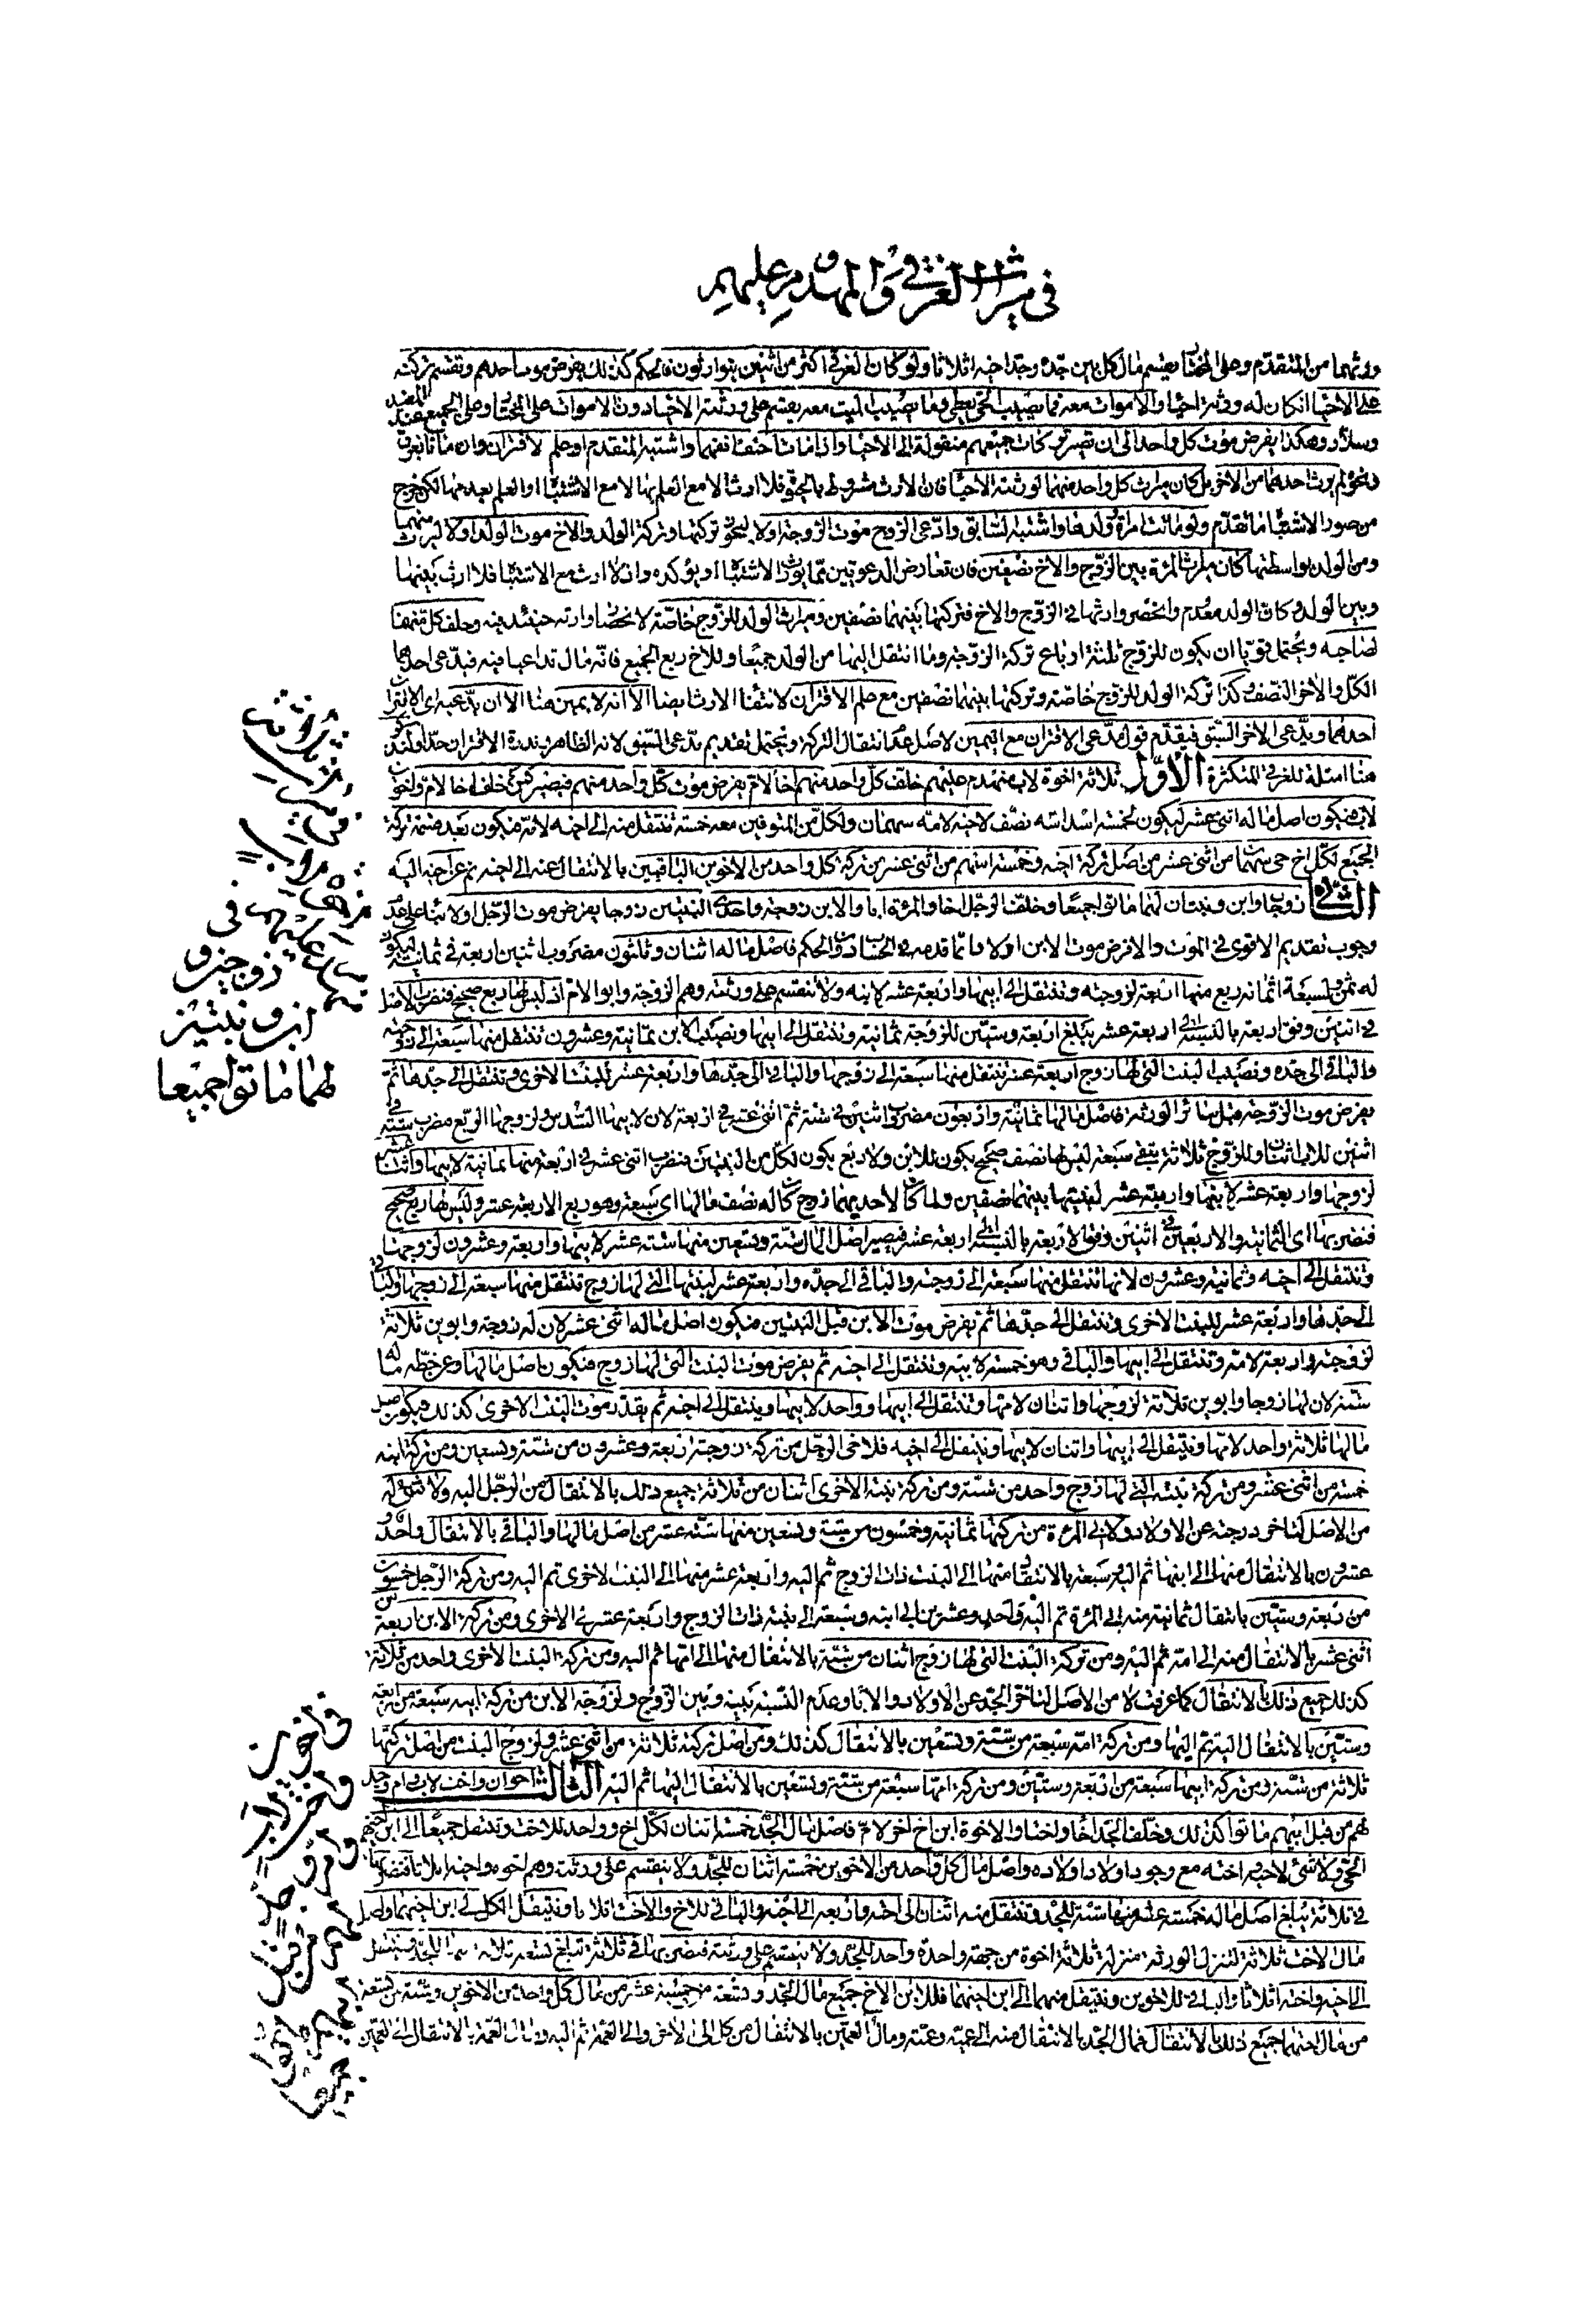 في ميراث الغرقى والمهدوم عليهم
ورثهما من المتقدم وعلى المختار يقسم مال كل بين جده وجد اخيه اثلاثا ولو كان الغرقى اكثر من اثنين يتوارثون فالحكم كذلك يفرض موت احدهم وتقسم تركته
على الاحياء ان كان له ورثة احياء والاموات معه فما يصيب الحي يعطى وما يصيب الميت معه يقسم على ورثته الاحياء دون الاموات على المختار وعلى الجميع عند المفيد
وسلار وهكذا يفرض موت كل واحد الى ان تصير تركات جميعهم منقولة الى الاحياء واذا ماتا حتف انفهما واشتبه المتقدم او علم الاقتران وان ماتا بغرق
ونحوه لم يرث احدهما من الاخر بل كان ميراث كل واحد منهما لورثته الاحياء فان الارث مشروط بالحيوة فلا ارث الا مع العلم بها لا مع الاشتباه او العلم بعدمها لكن خرج
من صور الاشتباه ما تقدم ولو ماتت امراة وولدها واشتبه السابق وادعى الزوج موت الزوجة اولا ليحوز تركتها وتركة الولد والاخ موت الولد اولا ليرث منهما
ومن الولد بواسطتها كان ميراث المرئة بين الزوج والاخ نصفين فان تعارض الدعويين مما يورث الاشتباه او يؤكده واذ لا ارث مع الاشتباه فلا ارث بينهما
وبين الولد وكان الولد معدوم وانحصر وارثها في الزوج والاخ فتركتها بينهما نصفين وميراث الولد للزوج خاصة لانحصار وارثه حينئذ فيه وحلف كل منهما
لصاحبه ويحتمل قويا ان يكون للزوج ثلثة ارباع تركة الزوجة وما انتقل اليها من الولد جميعا وللاخ ربع الجميع فانه مال تداعيا فيه فيدعي احدهما
الكل والاخر النصف وكذا تركة الولد للزوج خاصة وتركتها بينهما نصفين مع علم الاقتران لانتفاء الارث ايضا الا انه لا يمين هنا الا ان يدعي الاقتران
احدهما ويدعي الاخر السبق فيقدم قول مدعي الاقتران مع اليمين لاصل عدم انتقال التركة ويحتمل تقديم مدعي السبق لانه الظاهر بندرة الاقتران جدا ولنذكر
هنا امثلة للغرقى المتكثرة الاول ثلاثة اخوة لاب منهدم عليهم خلف كل واحد منهم اخا لام يفرض موت كل واحد منهم فيصير كمن خلف اخا لام واخوين
لاب فيكون اصل ماله اثنى عشر ليكون لخمسة اسداسه نصف لاخيه لامه سهمان ولكل من المتوفين معه خمسة تنتقل منه الى اخيه لامه فيكون بعد قسمة تركة
الجميع لكل اخ حي سهمان من اثنى عشر من اصل تركة اخيه وخمسة اسهم من اثنى عشر من تركة كل واحد من الاخوين الباقيين بالانتقال عنه الى اخيه ثم عن اخيه اليه
الثاني زوجان وابن وبنتان لهما ماتوا جميعا وخلف الرجل اخا والمرئة ابا والابن زوجة واحدى البنتين زوجا يفرض موت الرجل اولا بناء على عدم
وجوب تقديم الاقوى في الموت والا فرض موت الابن اولا فاصل ماله اثنان وثلثون مضروب اثنين اربعة في ثمانية ليكون
له ثمن ولسبعة اثمانه ربع منها اربعة لزوجته وتنتقل الى ابيها واربعة عشر لابنه ولا تنقسم على ورثته وهم الزوجة وابو الام اذ ليس لها ربع صحيح فنضرب الاصل
في اثنين وفق اربعة بالنسبة الى اربعة عشر يبلغ اربعة وستين للزوجة ثمانية وتنتقل الى ابيها ونصيب الابن ثمانية وعشرون تنتقل منها سبعة الى زوجته
والباقي الى جده ونصيب البنت التي لها زوج اربعة عشر تنتقل منها سبعة الى زوجها والباقي الى جدها واربعة عشر للبنت الاخرى وتنتقل الى جدها ثم
يفرض موت الزوجة قبل سائر الورثة فاصل مالها ثمانية واربعون مضروب اثنين في ستة ثم اثنى عشر في اربعة لان لابيها السدس ولزوجها الربع مضرب ستة في
اثنين للاب اثنان وللزوج ثلاثة يبقى سبعة ليس لها نصف صحيح يكون للابن ولا ربع يكون لكل من البنتين فنضرب اثنى عشر في اربعة منها ثمانية لابيها واثنا عشر
لزوجها واربعة عشر لابنها واربعة عشر لبنتيها بينهما نصفين ولما كان لاحديهما زوج كان له نصف مالها اي سبعة وهو ربع الاربعة عشر وليس لها ربع صحيح
فنضربها اي الثمانية والاربعين في اثنين وفق الاربعة بالنسبة الى اربعة عشر فيصير اصل المال ستة وتسعين منها ستة عشر لابيها واربعة وعشرون لزوجها
وتنتقل الى اخيه وثمانية وعشرون لابنها تنتقل منها سبعة الى زوجته والباقي الى جده واربعة عشر لبنتها التي لها زوج تنتقل منها سبعة الى زوجها والباقي
الى جدها واربعة عشر للبنت الاخرى وتنتقل الى جدها ثم يفرض موت الابن قبل البنتين فيكون اصل ماله اثنى عشر لان له زوجة وابوين ثلاثة
لزوجته واربعة لامه وتنتقل الى ابيها والباقي وهو خمسة لابيه وتنتقل الى اخيه ثم يفرض موت البنت التي لها زوج فيكون اصل مالها
ستة لان لها زوجا وابوين ثلاثة لزوجها واثنان لامها وتنتقل الى ابيها وواحد لابيها وينتقل الى اخيه ثم يقدر موت البنت الاخرى كذلك فيكون اصل
مالها ثلاثة واحد لامها وينتقل الى ابيها واثنان لابيها وينتقل الى اخيه فلاخي الرجل من تركة زوجته اربعة وعشرون من ستة وتسعين ومن تركة ابنه
خمسة من اثنى عشر ومن تركة بنته التي لها زوج واحد من ستة ومن تركة بنته الاخرى اثنان من ثلاثة جميع ذلك بالانتقال من الرجل اليه ولا شيء له
من الاصل لتاخر درجته عن الاولاد ولابي المرئة من تركتها ثمانية وخمسون من ستة وتسعين منها ستة عشر من اصل مالها والباقي بالانتقال واحد و
عشرون بالانتقال منها الى ابنها ثم اليه وسبعة بالانتقال منها الى البنت ذات الزوج ثم اليه واربعة عشر منها الى البنت الاخرى ثم اليه ومن تركة الرجل خمسون
من اربعة وستين بانتقال ثمانية منه الى المرئة ثم اليه واحد وعشرين الى ابنه وسبعة الى بنته ذات الزوج واربعة عشر الى الاخرى ومن تركة الابن اربعة من
اثنى عشر بالانتقال منه الى امه ثم اليه ومن تركة البنت التي لها زوج اثنان من ستة بالانتقال منها الى امها ثم اليه ومن تركة البنت الاخرى واحد من ثلاثة
كذلك جميع ذلك بالانتقال كما عرفت لا من الاصل لتاخر الجد عن الاولاد والاباء وعدم النسبة بينه وبين الزوج ولزوجة الابن من تركة ابيه سبعة من اربعة
وستين بالانتقال اليه ثم اليها ومن تركة امه سبعة من ستة وتسعين بالانتقال كذلك ومن اصل تركته ثلاثة من اثنى عشر ولزوج البنت من اصل تركتها
ثلاثة من ستة ومن تركة ابيها سبعة من اربعة وستين ومن تركة امها سبعة من ستة وتسعين بالانتقال اليها ثم اليه الثالث اخوان واخت لاب وام وجد
لهم من قبل ابيهم ماتوا كذلك وخلف الجد اخا واختا والاخوة ابن اخ اخر لام فاصل مال الجد خمسة اثنان لكل اخ وواحد للاخت وتنتقل جميعا الى ابن اخيهم
الحي ولا شيء لاخيه واخته مع وجود اولاد اولاده واصل مال كل واحد من الاخوين خمسة اثنان للجد ولا ينقسم على ورثته وهم اخوه واخته اثلاثا فنضربها
في ثلاثة تبلغ اصل ماله خمسة عشر منها ستة للجد وتنتقل منه اثنان الى اخته واربعة الى اخيه والباقي للاخ والاخت اثلاثا وينتقل الكل الى ابن اخيهما واصل
مال الاخت ثلاثة لتنزل الورثة منزلة ثلاثة اخوة من جهة واحدة واحد للجد ولا ينقسم على ورثته فنضربها في ثلاثة تبلغ تسعة ثلاثة منها للجد وينتقل
الى اخيه واخته اثلاثا والباقي للاخوين وينتقل منهما الى ابن اخيهما فللابن الاخ جميع مال الجد وتسعة من خمسة عشر من مال كل واحد من الاخوين وستة من تسعة
من مال اختهما جميع ذلك بالانتقال فمال الجد بالانتقال منه الى عميه وعمته ومال العمين بالانتقال من كل الى الاخر والى العمة ثم اليه ومال العمة بالانتقال الى العمين
زوجين و
ابن وبنتين
لهما ماتوا جميعا